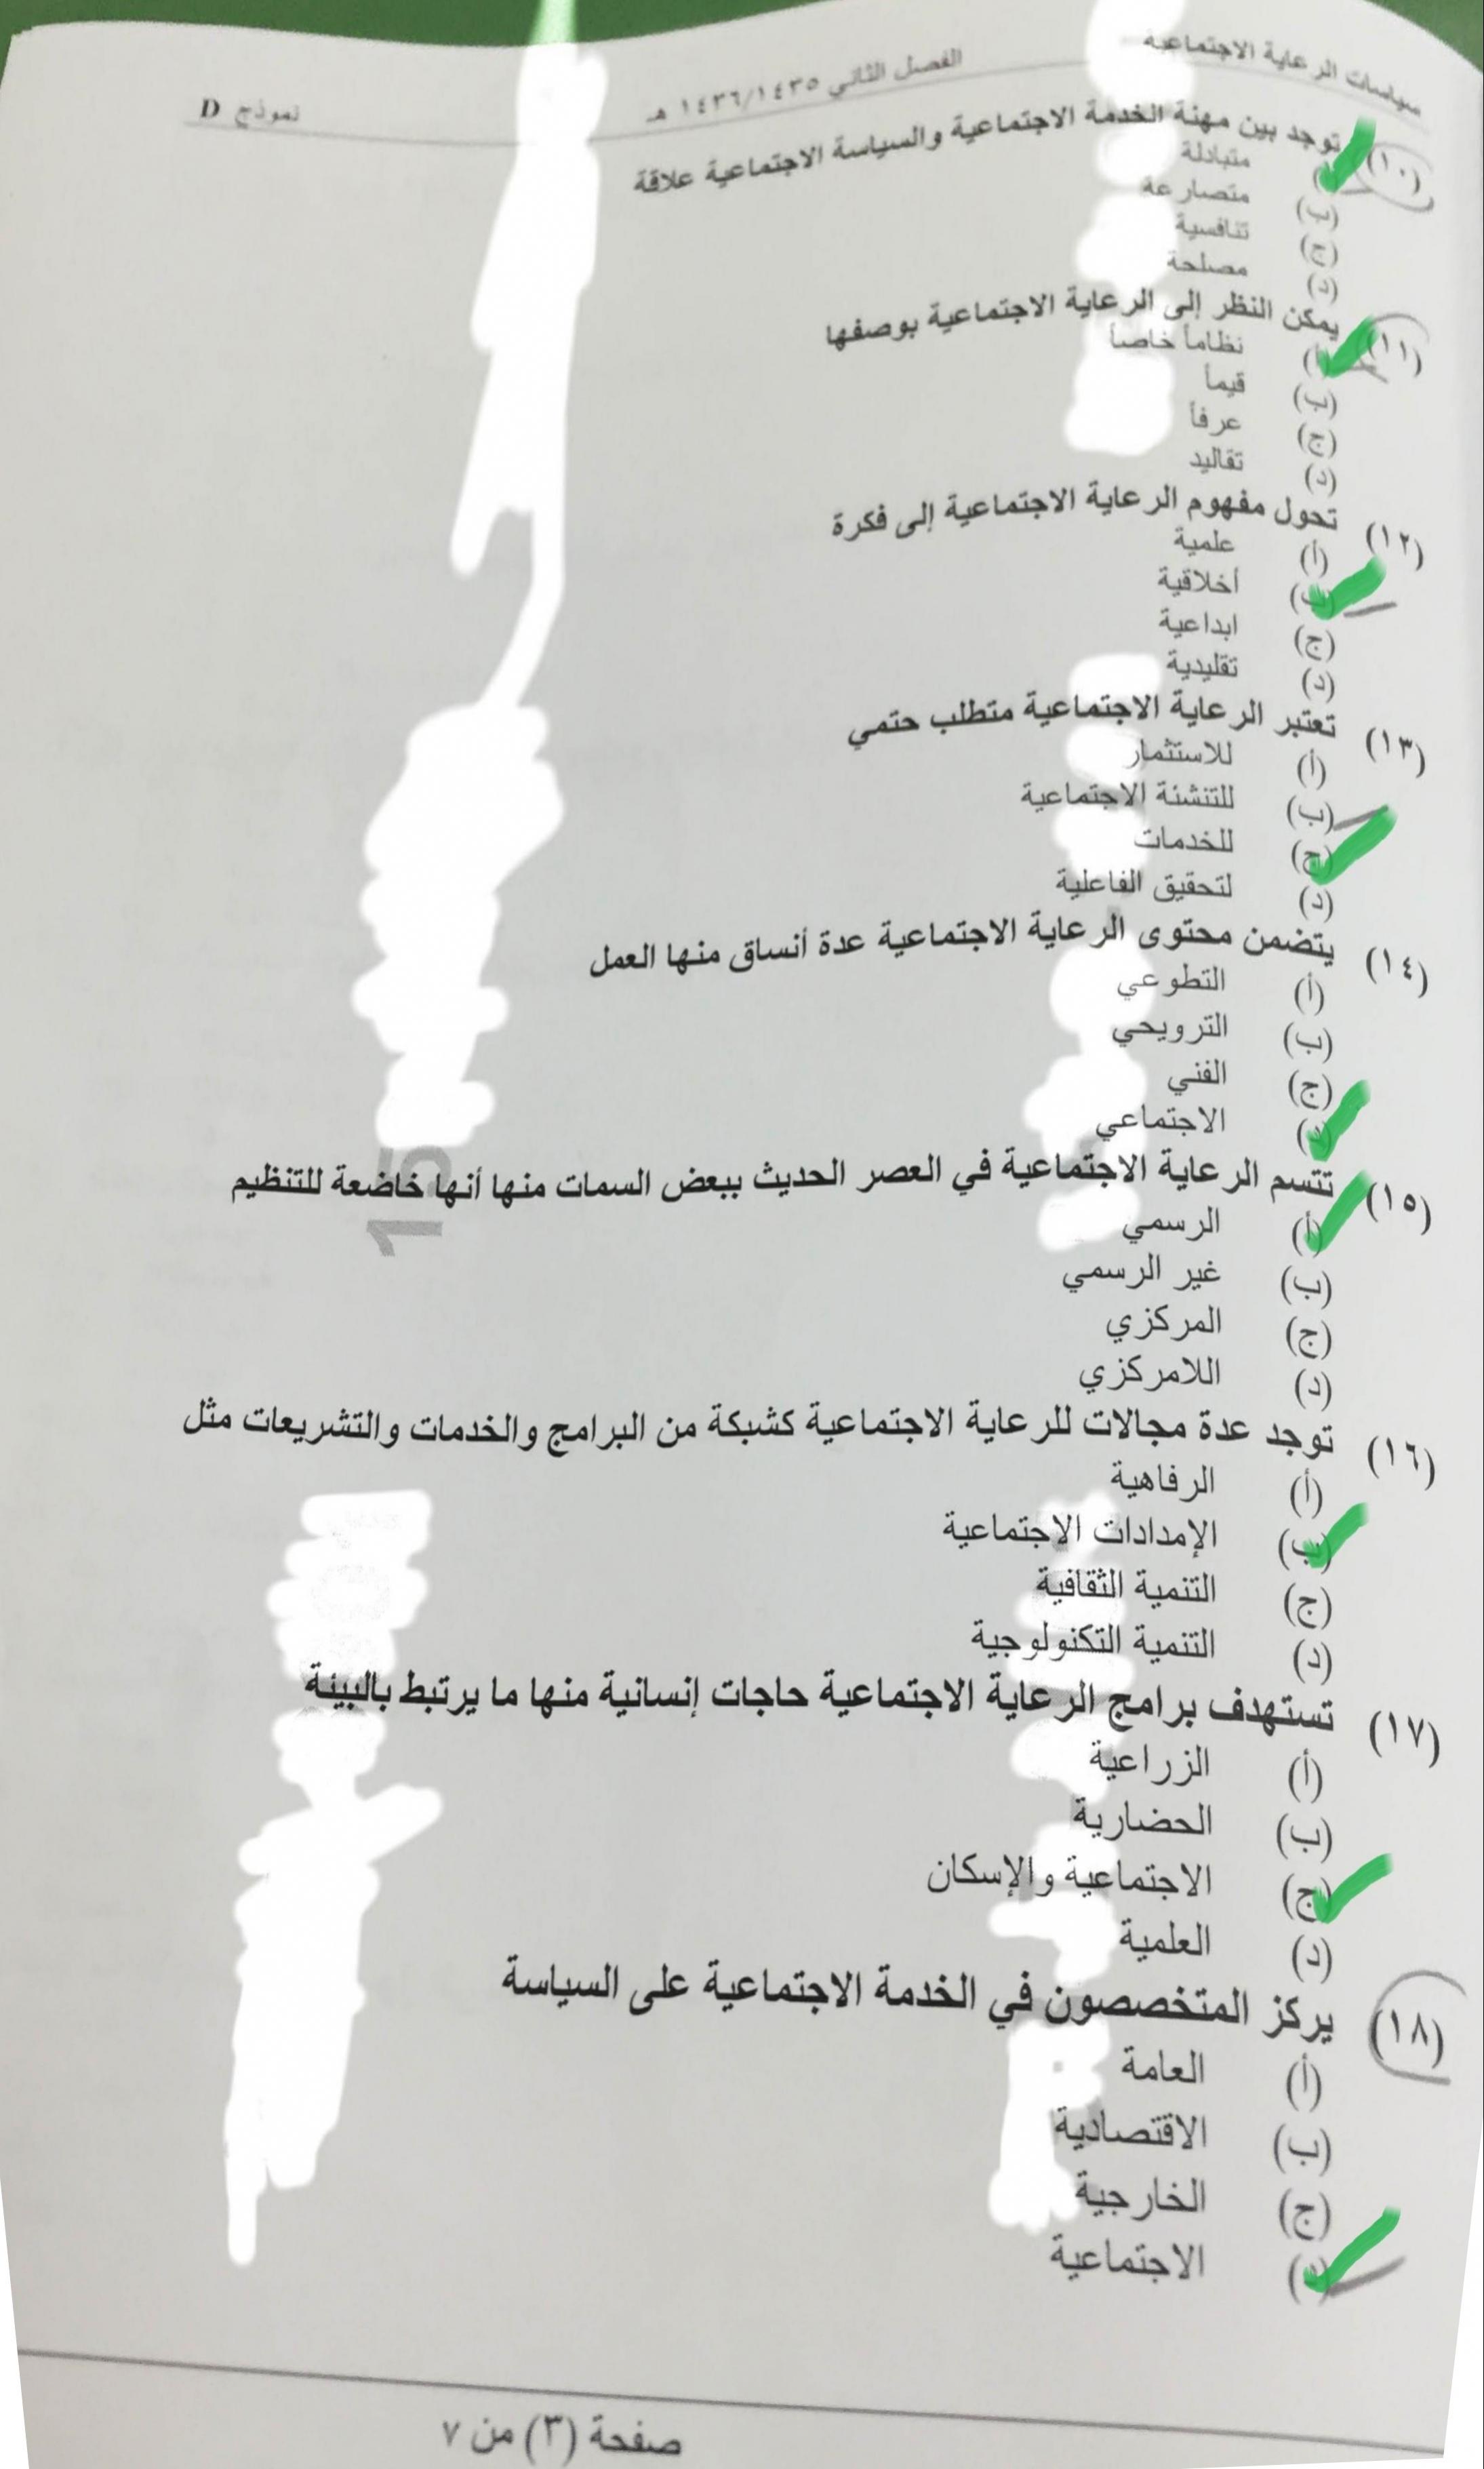 سياسات الرعاية الاجتماعية الفصل الثاني ١٤٣٦/١٤٣٥ هـ نموذج D
(١٠) توجد بين مهنة الخدمة الاجتماعية والسياسة الاجتماعية علاقة
متبادلة
(ب) متصارعة
(ج) تنافسية
(د) مصلحة
(١١) يمكن النظر إلى الرعاية الاجتماعية بوصفها
(أ) نظاماً خاصاً
(ب) قيماً
(ج) عرفاً
(د) تقاليد
(١٢) تحول مفهوم الرعاية الاجتماعية إلى فكرة
(أ) علمية
(ب) أخلاقية
(ج) ابداعية
(د) تقليدية
(١٣) تعتبر الرعاية الاجتماعية متطلب حتمي
(أ) للاستثمار
(ب) للتنشئة الاجتماعية
(ج) للخدمات
(د) لتحقيق الفاعلية
(١٤) يتضمن محتوى الرعاية الاجتماعية عدة أنساق منها العمل
(أ) التطوعي
(ب) الترويحي
(ج) الفني
(د) الاجتماعي
(١٥) تتسم الرعاية الاجتماعية في العصر الحديث ببعض السمات منها أنها خاضعة للتنظيم
(أ) الرسمي
(ب) غير الرسمي
(ج) المركزي
(د) اللامركزي
(١٦) توجد عدة مجالات للرعاية الاجتماعية كشبكة من البرامج والخدمات والتشريعات مثل
(أ) الرفاهية
(ب) الإمدادات الاجتماعية
(ج) التنمية الثقافية
(د) التنمية التكنولوجية
(١٧) تستهدف برامج الرعاية الاجتماعية حاجات إنسانية منها ما يرتبط بالبيئة
(أ) الزراعية
(ب) الحضارية
(ج) الاجتماعية والإسكان
(د) العلمية
(١٨) يركز المتخصصون في الخدمة الاجتماعية على السياسة
(أ) العامة
(ب) الاقتصادية
(ج) الخارجية
(د) الاجتماعية
صفحة (٣) من ٧